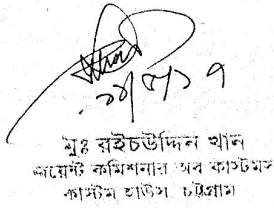 মুঃ রইচউদ্দিন খান
জয়েন্ট কমিশনার অব কাস্টমস
কাস্টম হাউস চট্টগ্রাম